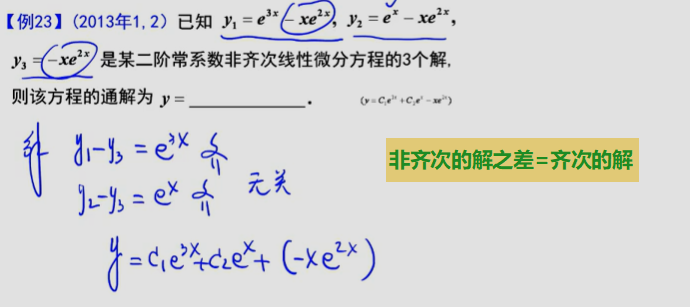 【例23】(2013年1, 2) 已知 y₁ = e³ˣ − xe²ˣ, y₂ = eˣ − xe²ˣ,
y₃ = −xe²ˣ 是某二阶常系数非齐次线性微分方程的3个解,
则该方程的通解为 y = ____________. (y = C₁e³ˣ + C₂eˣ − xe²ˣ)
y₁−y₃ = e³ˣ
非齐次的解之差=齐次的解
y₂−y₃ = eˣ 无关
y = C₁e³ˣ+C₂eˣ + (−xe²ˣ)